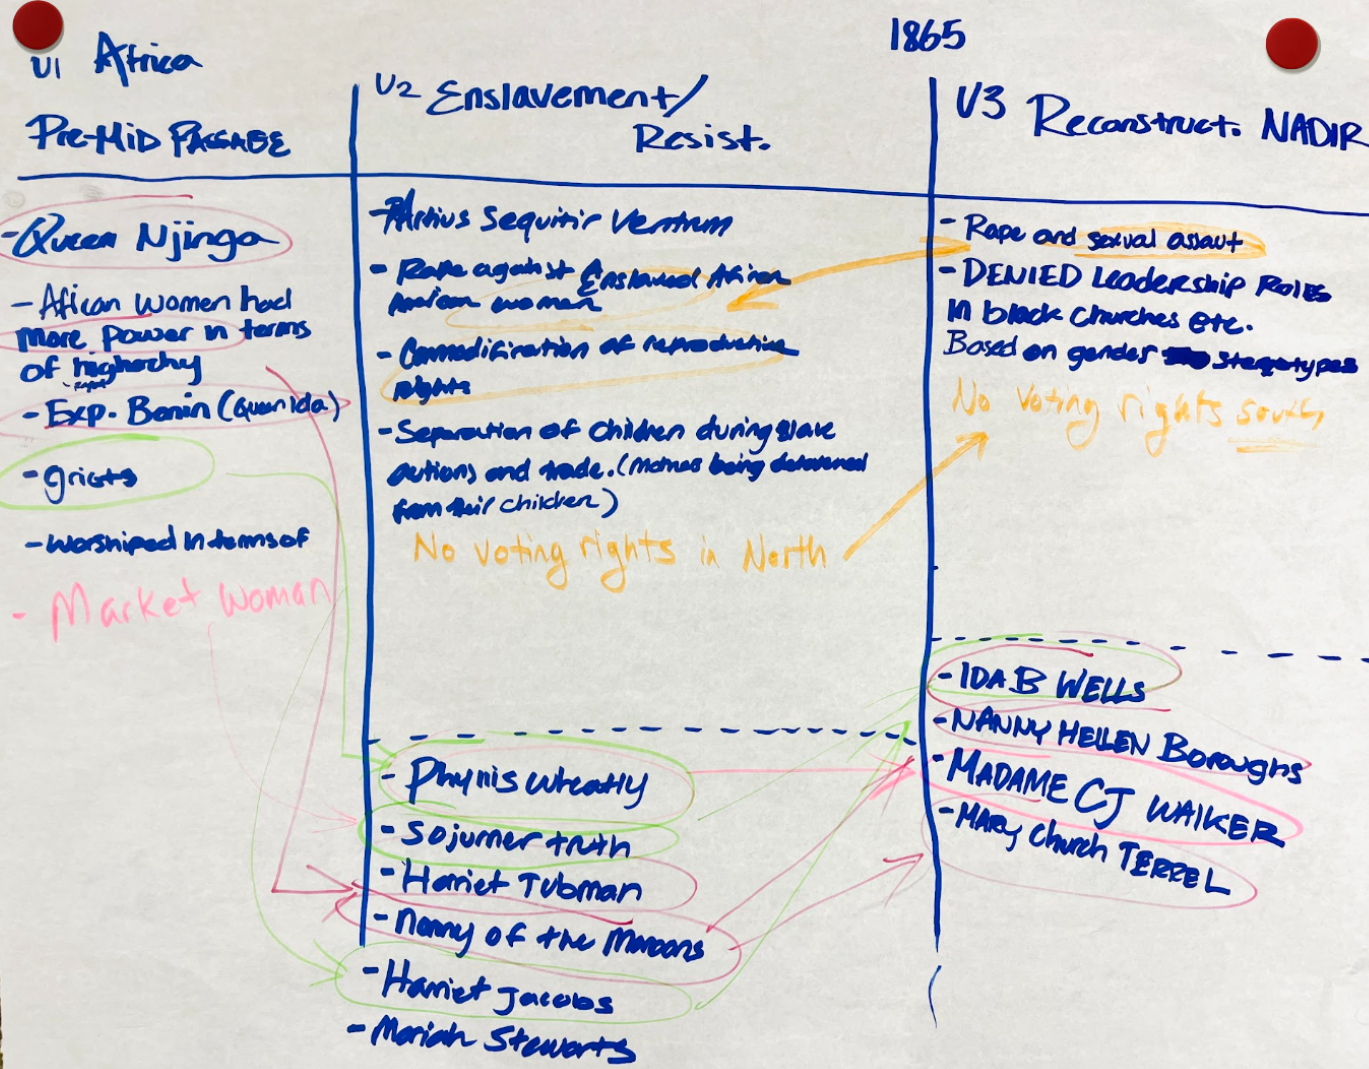 U1 Africa
Pre-Mid PASSAGE
- Queen Njinga
- African women had
more power in terms
of highachy
- Exp. Benin (Queen Ida)
- griots
- worshiped in terms of
- Market woman
U2 Enslavement/
Resist.
- Partius Sequitir Ventrum
- Rape against Enslaved African
American women
- Commodification of reproductive
rights
- Separation of children during slave
auctions and trade. (Mothers being
from their children)
No voting rights in North
- Phyllis wheatly
- Sojurner truth
- Harriet Tubman
- Nanny of the Maroons
- Harriet Jacobs
- Moriah Stewarts
1865
U3 Reconstruct. NADIR
- Rape and sexual assaut
- DENIED Leadership Roles
In black churches etc.
Based on gender stereotypes
No voting rights south,
- IDA B WELLS
- NANNY HELLEN Boroughs
- MADAME CJ WALKER
- MARY Church TERREL